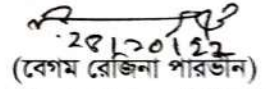 28/20/22
(বেগম রেজিনা পারভীন)